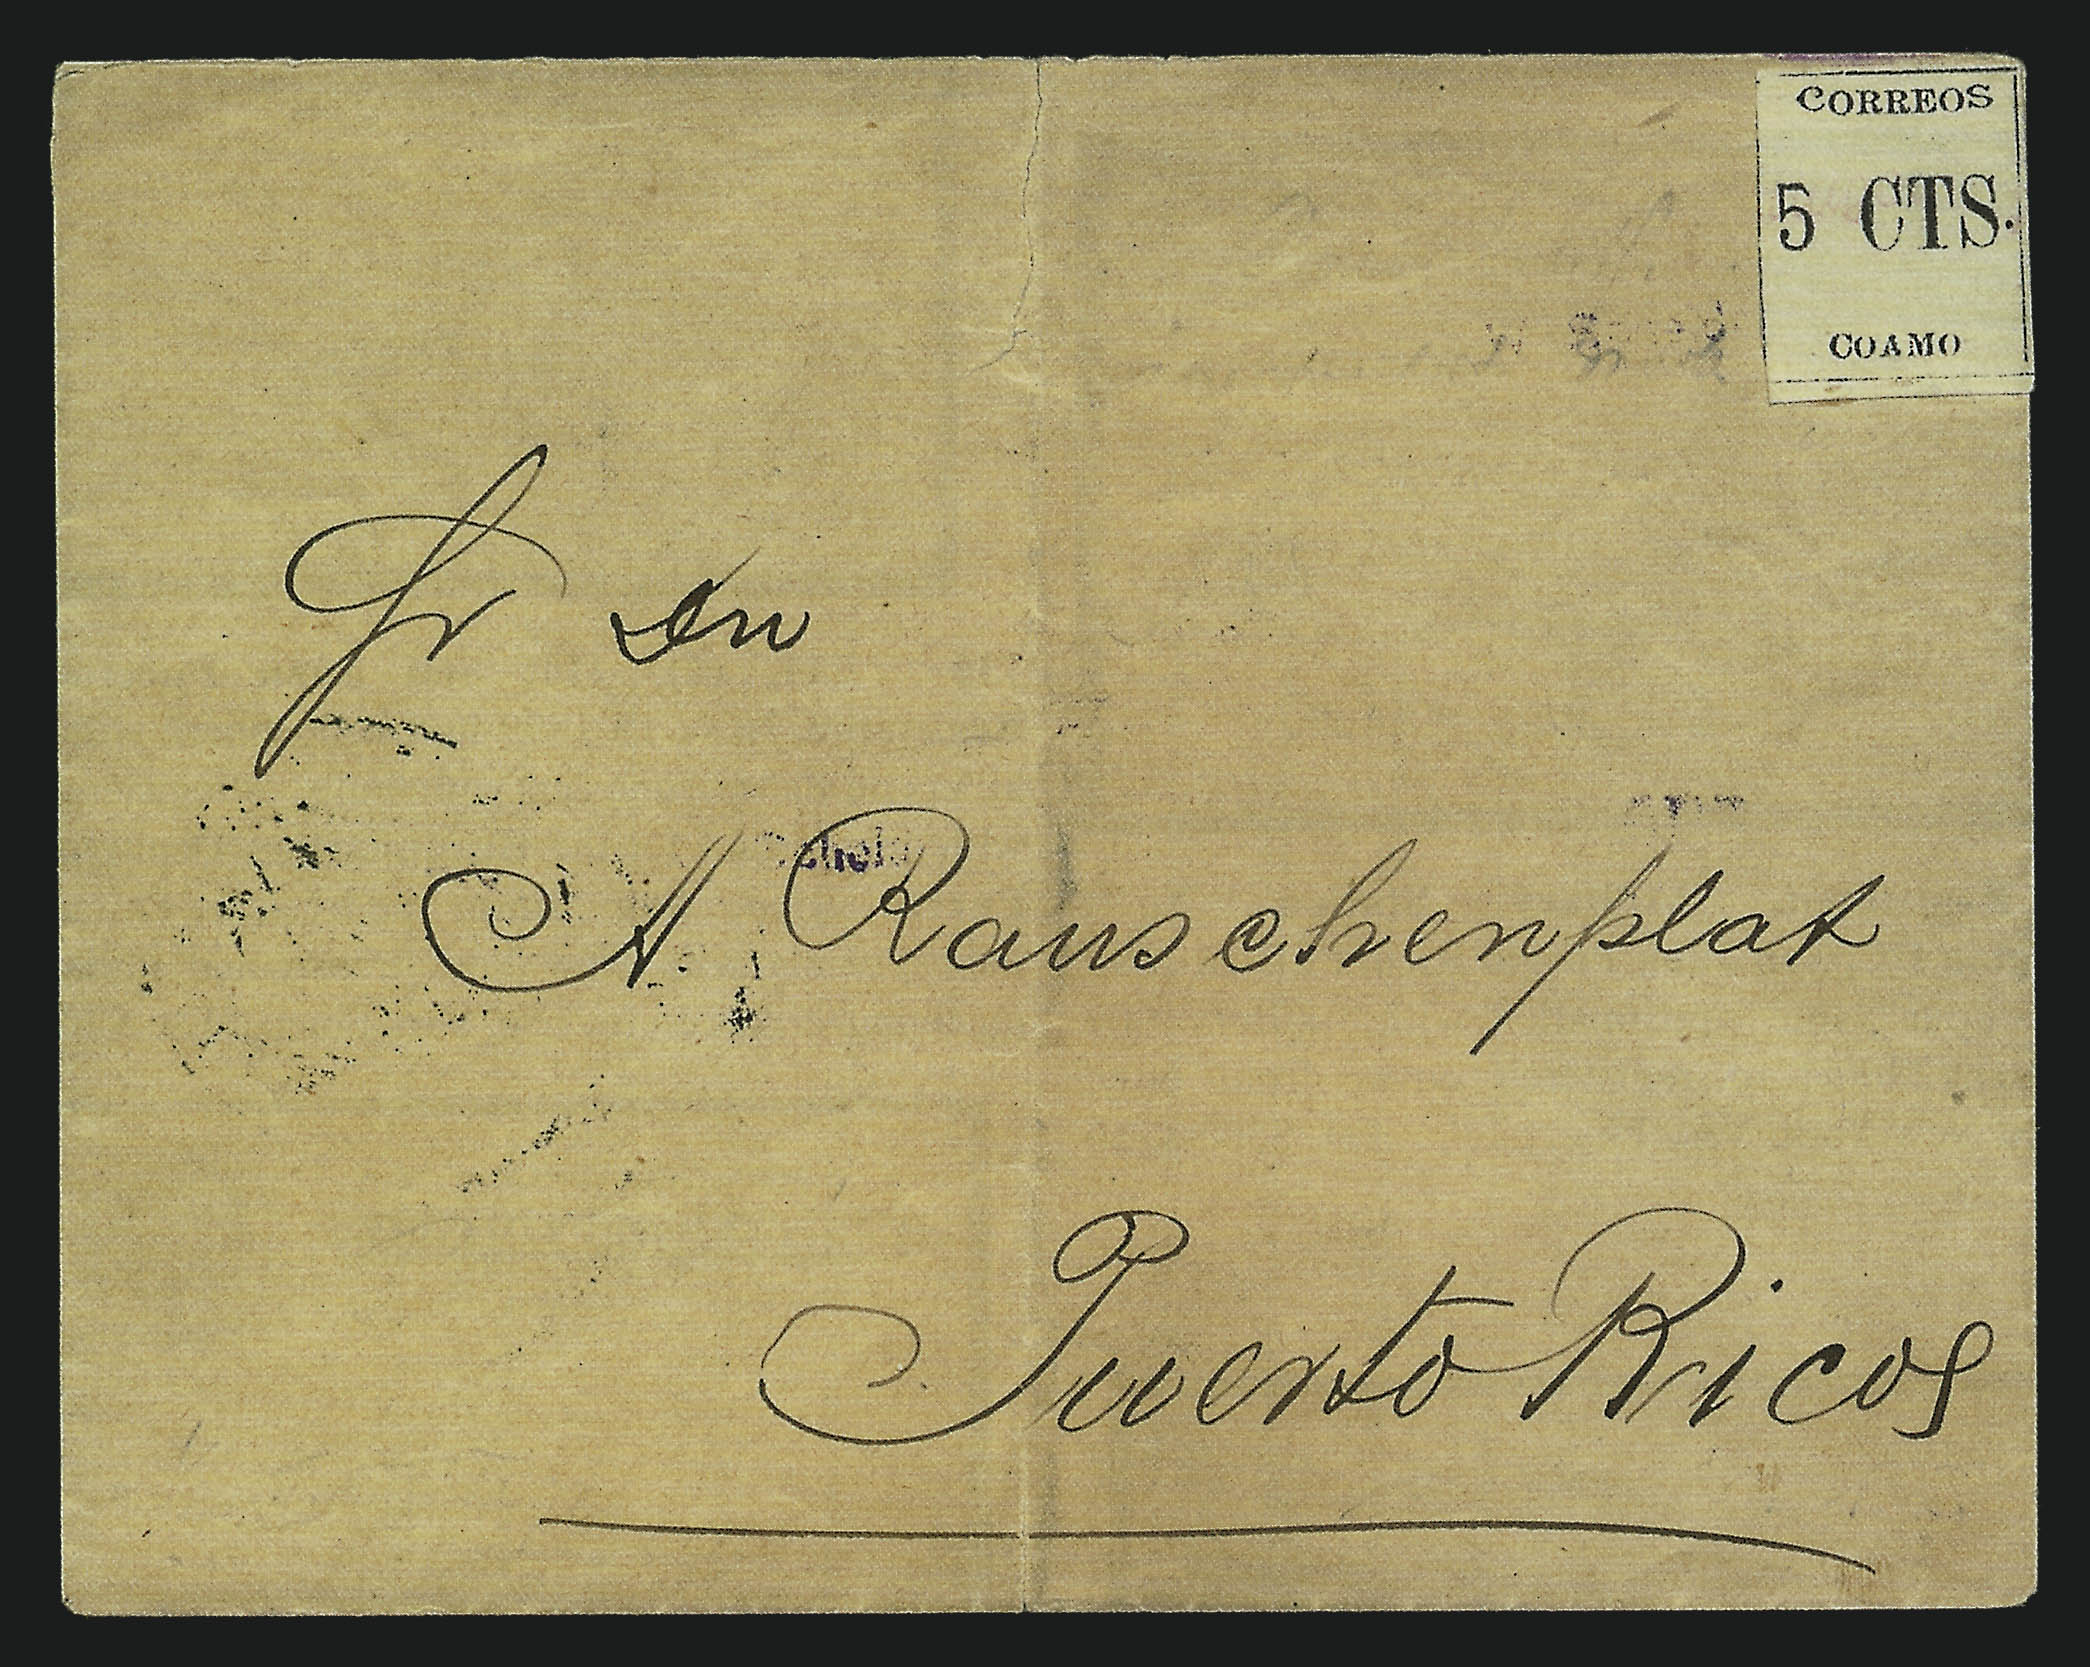 CORREOS
5 CTS.
COAMO
Sr Dn
A Rauschenplat
Puerto Rico